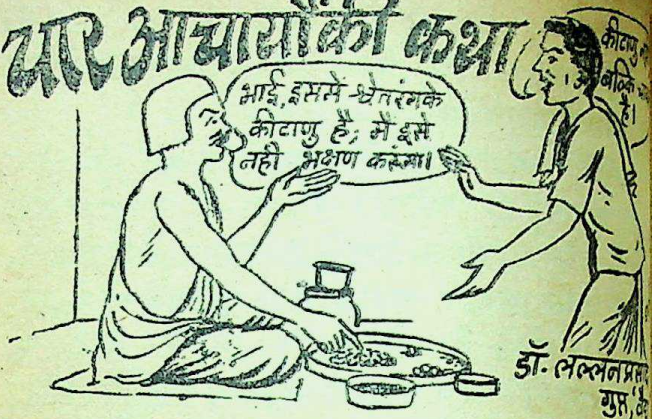 चार आचार्योंकी कथा
भाई, इसमें श्वेतरंगके
कीटाणु है; मैं इसे
नही भक्षण करूंगा।
कीटाणु
बल्कि
है।
डॉ. लल्लनप्रसाद
गुप्त,